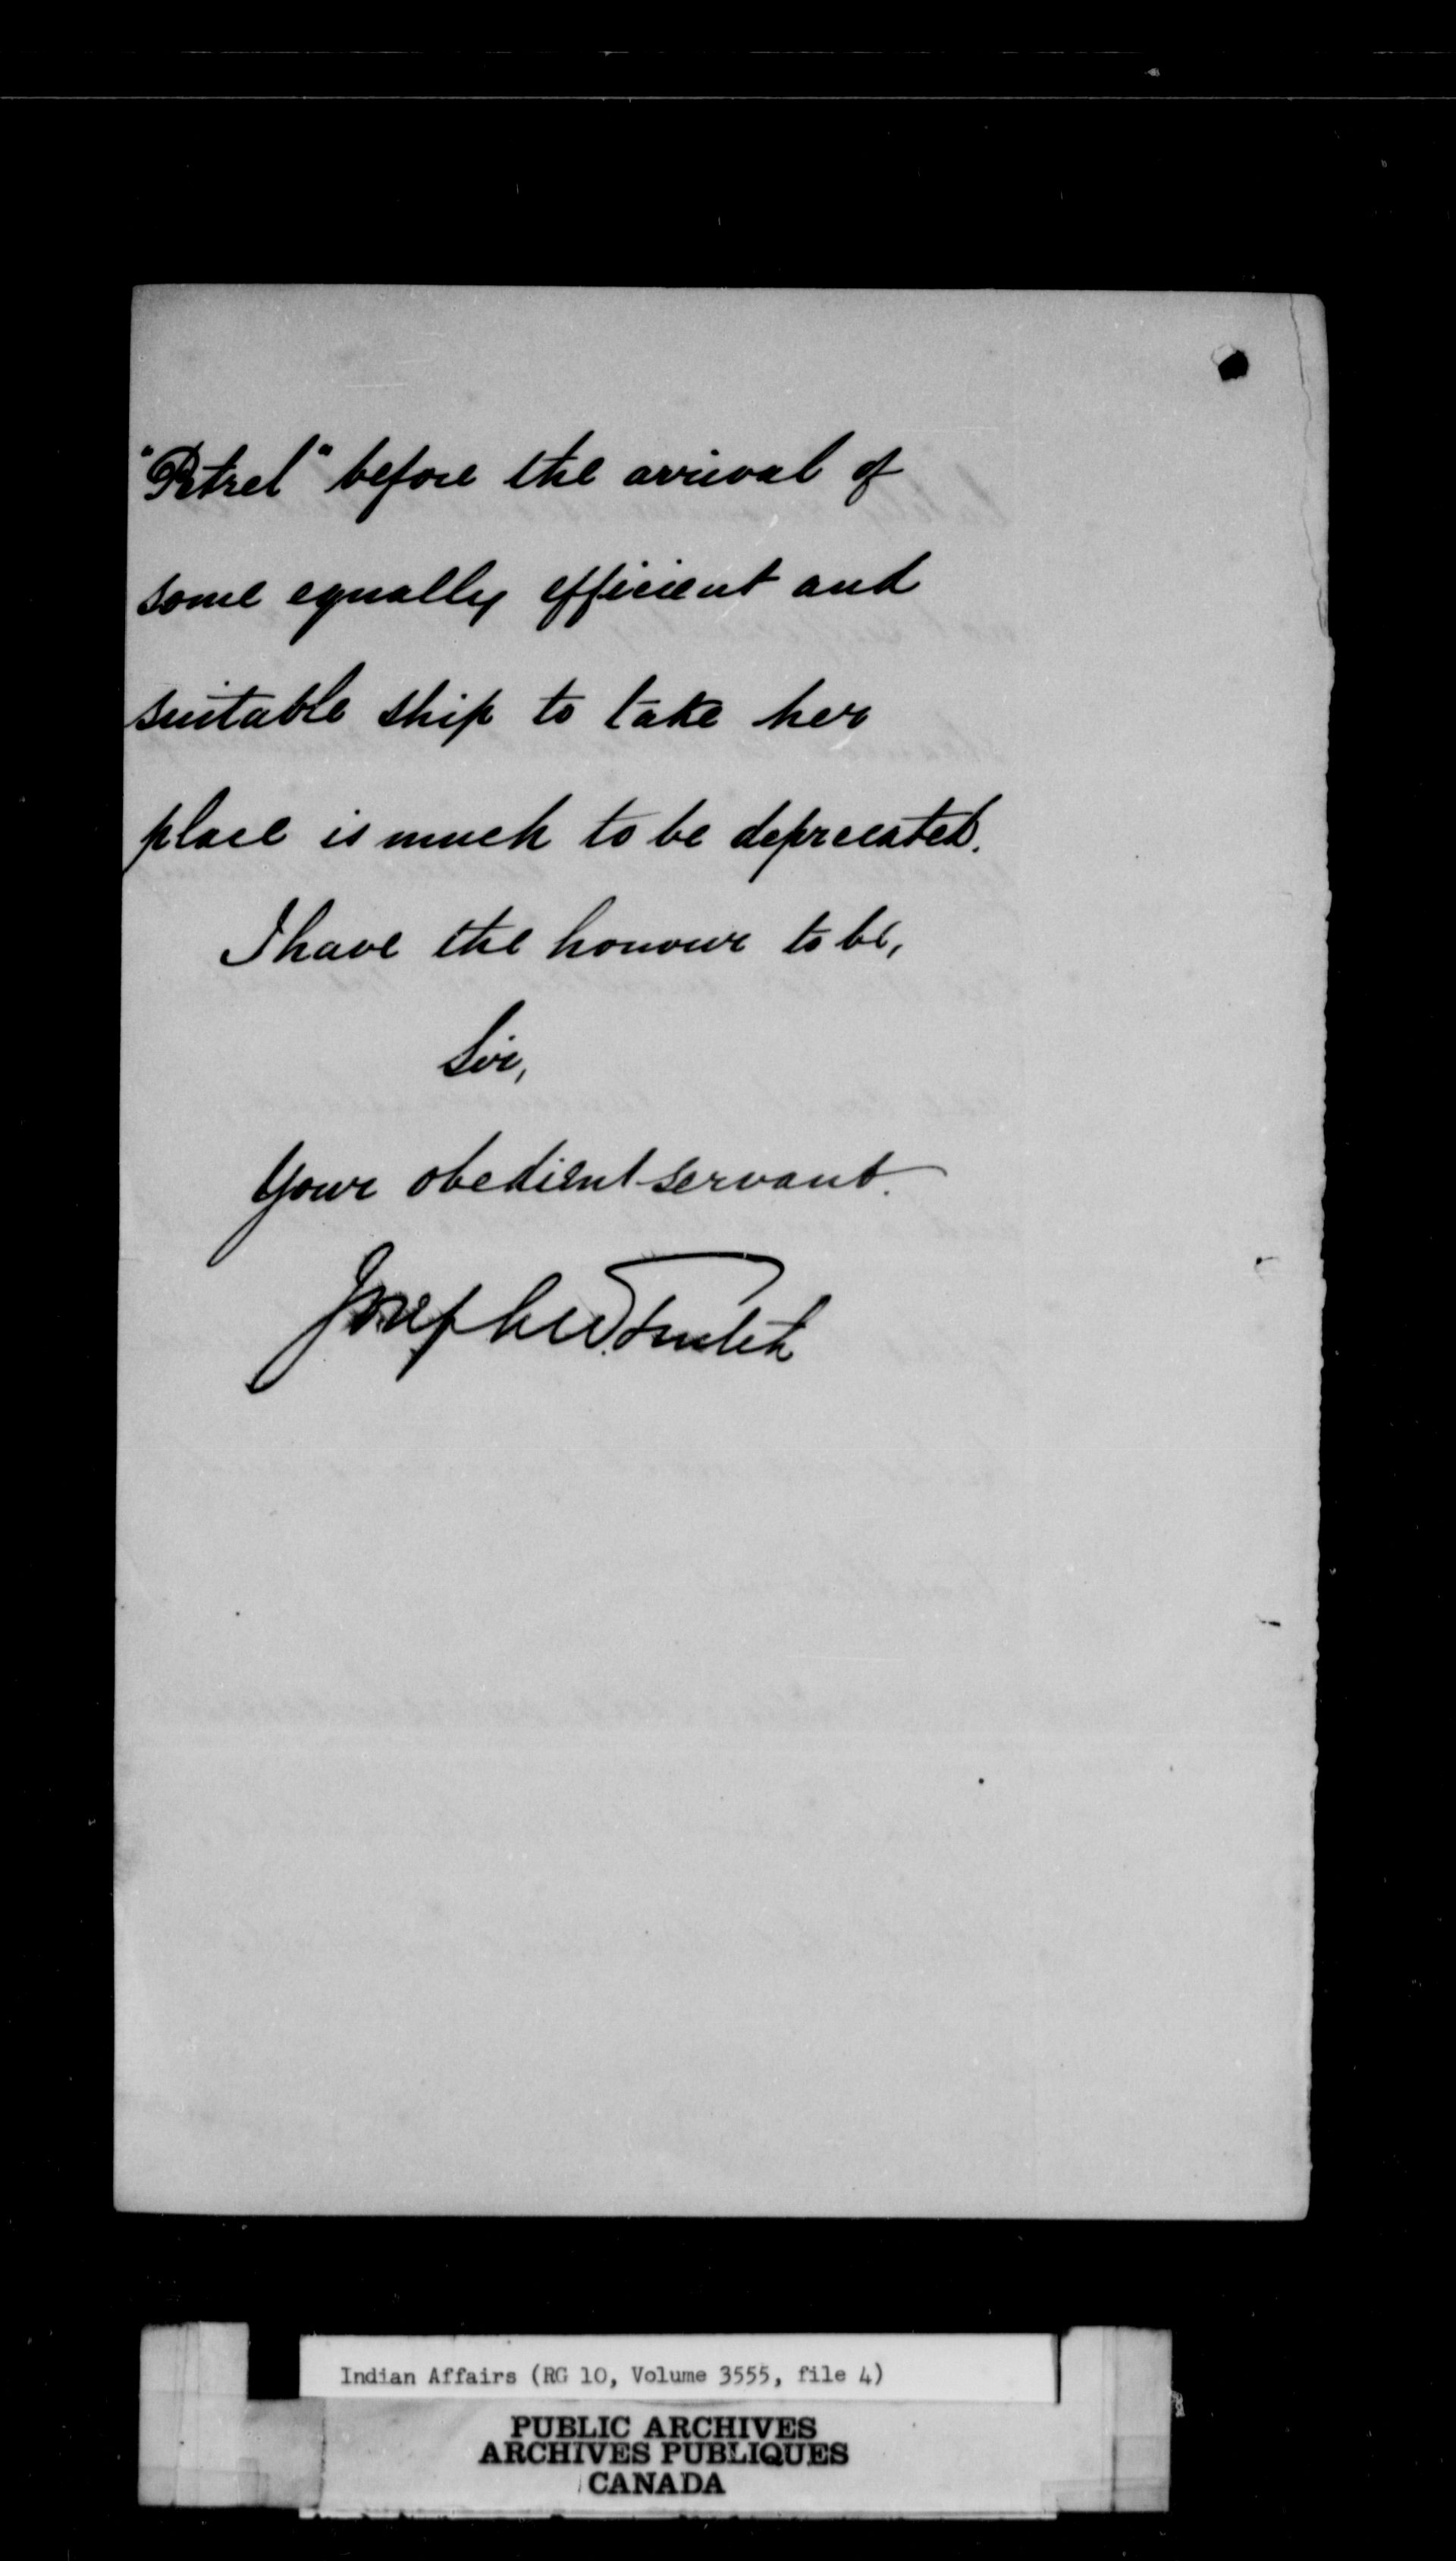 "Petrel" before the arrival of
some equally efficient and
suitable ship to take her
place is much to be deprecated.
I have the honour to be,
Sir,
Your obedient servant.
Joseph W. Trutch
Indian Affairs (RG 10, Volume 3555, file 4)
PUBLIC ARCHIVES
ARCHIVES PUBLIQUES
CANADA